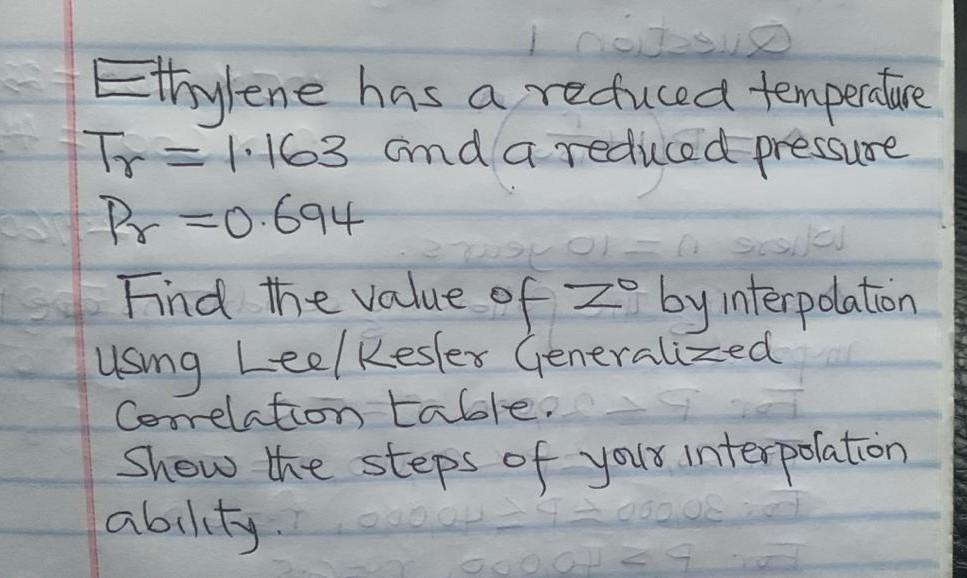 Ethylene has a reduced temperature
Tr = 1.163 and a reduced pressure
Pr = 0.694
Find the value of Z° by interpolation
using Lee/Kesler Generalized
Correlation table.
Show the steps of your interpolation
ability.